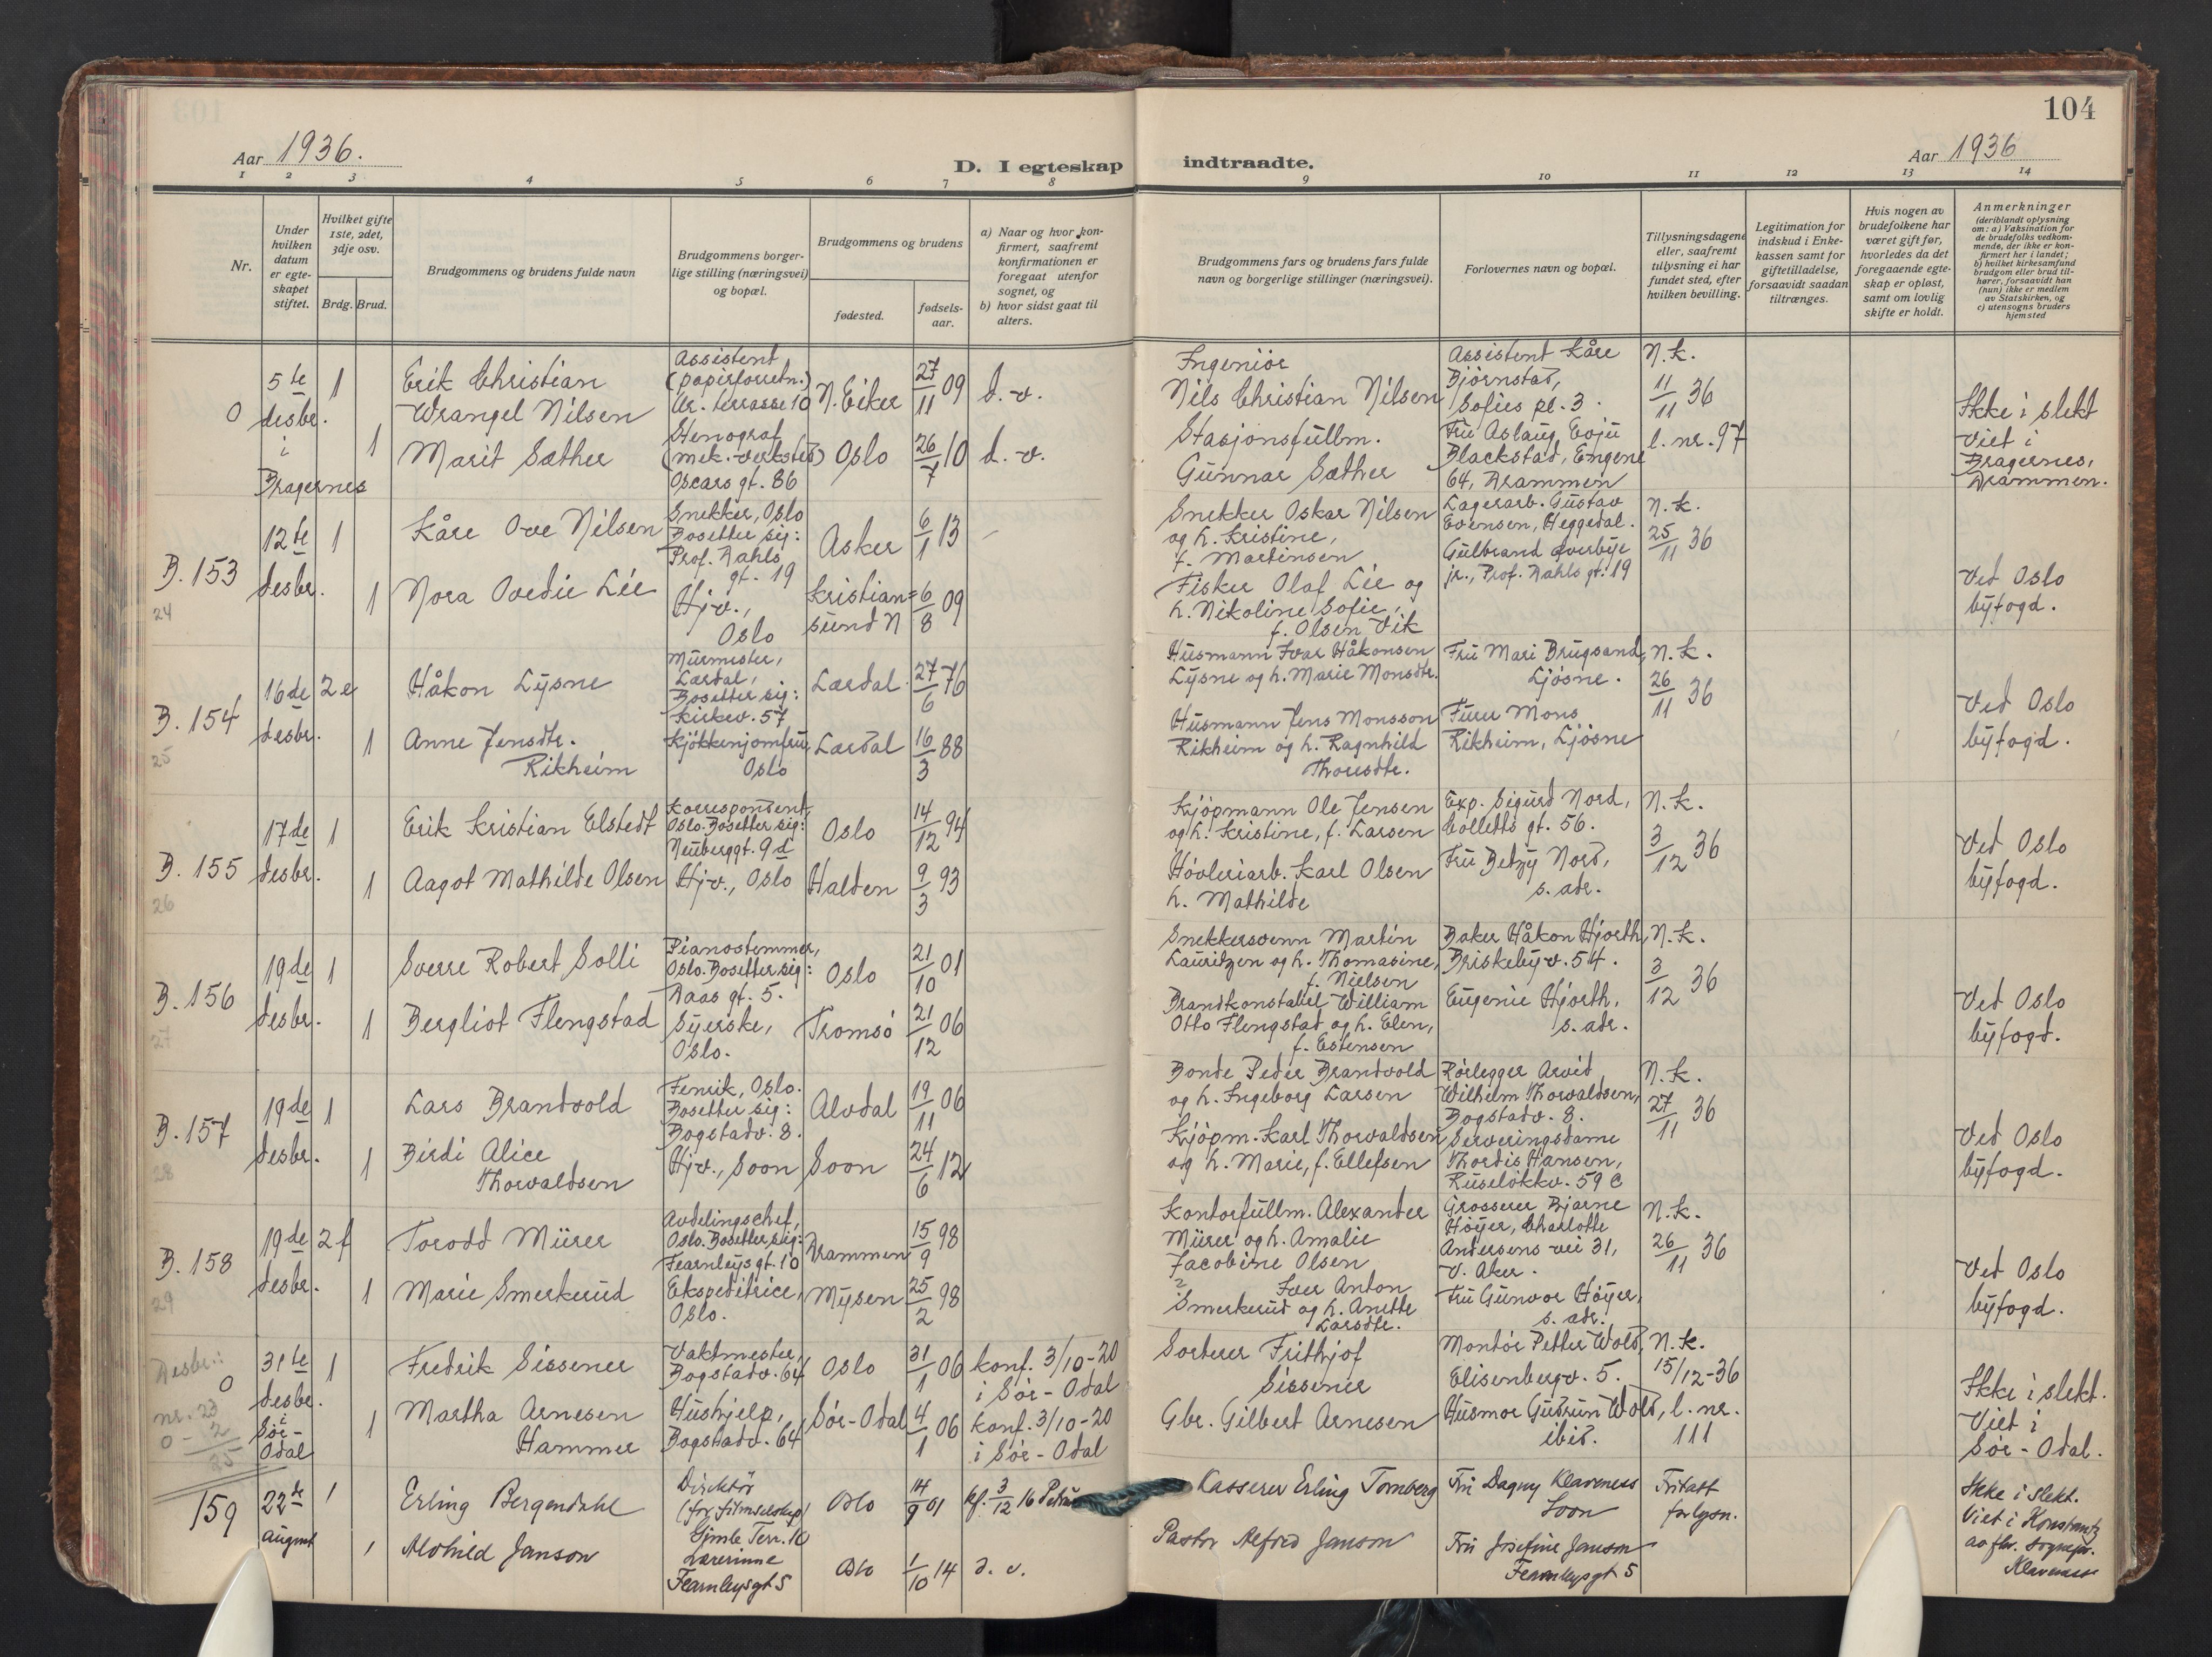 104
Aar 1936.
D. I egteskap indtraadte.
Aar 1936
1 2 3 4 5 6 7 8 9 10 11 12 13 14
Nr.
Under hvilken datum er egte-skapet stiftet.
Hvilket gifte 1ste, 2det, 3dje osv.
Brdg. Brud.
Brudgommens og brudens fulde navn
Brudgommens borger-lige stilling (næringsvei) og bopæl.
Brudgommens og brudens
fødested.
fødsels-aar.
a) Naar og hvor kon-firmert, saafremt konfirmationen er foregaat utenfor sognet, og
b) hvor sidst gaat til alters.
Brudgommens fars og brudens fars fulde navn og borgerlige stillinger (næringsvei).
Forlovernes navn og bopæl.
Tillysningsdagene eller, saafremt tillysning ei har fundet sted, efter hvilken bevilling.
Legitimation for indskud i Enke-kassen samt for giftetilladelse, forsaavidt saadan tiltrænges.
Hvis nogen av brudefolkene har været gift før, hvorledes da det foregaaende egte-skap er opløst, samt om lovlig skifte er holdt.
Anmerkninger (deriblandt oplysning om: a) Vaksination for de brudefolks vedkom-mende, der ikke er kon-firmert her i landet; b) hvilket kirkesamfund brudgom eller brud til-hører, forsaavidt han (hun) ikke er medlem av Statskirken, og c) utensogns bruders hjemsted
0
5te desbr. i Bragernes
1
Erik Christian Wrangel Nilsen
Assistent (papirforretn.) Ur. terrasse 10
N. Eiker
27/11 09
d. v.
Ingeniør Nils Christian Nilsen
Assistent Kåre Bjørnstad, Sofies pl. 3.
N.k. 11/11 36
1
Marit Sæther
Stenograf (mek. verksted) Oscars gt. 86
Oslo
26/7 10
d. v.
Stasjonsfullm. Gunnar Sæther
Fru Aslaug Evju Blackstad, Engene 64, Drammen
l. nr. 97
Ikke i slekt Viet i Bragernes, Drammen.
B. 153
24
12te desbr.
1
Kåre Ove Nilsen
Snekker, Oslo Bosetter sig: Prof. Dahls gt. 19
Asker
6/1 13
-
Snekker Oskar Nilsen og h. Kristine, f. Martinsen
Lagerarb. Gustav Evensen, Heggedal.
N.k. 25/11 36
1
Nora Ovedie Lie
Hjv., Oslo
Kristian=sund N
6/8 09
Fisker Olaf Lie og h. Nikoline Sofie, f. Olsen Vik
Gulbrand Øverbye jr., Prof. Dahls gt. 19
Ved Oslo byfogd.
B. 154
25
16de desbr.
2e
Håkon Lysne
Murmester, Lærdal, Bosetter sig: Kirkev. 57
Lærdal
27/6 76
Husmann Ivar Håkonsen Lysne og h. Marie Monsdtr.
Fru Mari Brugsand, Ljøsne.
N.k. 26/11 36
1
Anne Jensdtr. Rikheim
Kjøkkenjomfru, Oslo
Lærdal
16/3 88
Husmann Jens Monsson Rikheim og h. Ragnhild Thoresdtr.
Furer Mons Rikheim, Ljøsne
Ved Oslo byfogd.
B. 155
26
17de desbr.
1
Erik Kristian Elstedt
Korrespondent, Oslo. Bosetter sig: Neuberggt. 9d
Oslo
14/12 94
Kjøpmann Ole Jensen og h. Kristine, f. Larsen
Exp. Sigurd Nord, Colletts gt. 56.
N.k. 3/12 36
1
Aagot Mathilde Olsen
Hjv., Oslo
Halden
9/3 93
Høvleriarb. Karl Olsen h. Mathilde
Fru Betzy Nord, s. adr.
Ved Oslo byfogd.
B. 156
27
19de desbr.
1
Sverre Robert Solli
Pianostemmer, Oslo. Bosetter sig: Daas gt. 5.
Oslo
21/10 01
Snekkersvenn Martin Lauritzen og h. Thomasine, f. Nielsen
Baker Håkon Hjorth, Briskebyv. 54.
N.k. 3/12 36
1
Bergliot Flengstad
Syerske, Oslo.
Tromsø
21/12 06
Brandkonstabel William Otto Flengstad og h. Elen, f. Estensen
Eugenie Hjorth, s. adr.
Ved Oslo byfogd.
B. 157
28
19de desbr.
1
Lars Brandvold
Fenrik, Oslo. Bosetter sig: Bogstadv. 8.
Alvdal
19/11 06
Bonde Peder Brandvold og h. Ingeborg Larsen
Rørlegger Arvid Wilhelm Thorvaldsen, Bogstadv. 8.
N.k. 27/11 36
1
Birdi Alice Thorvaldsen
Hjv., Soon
Soon
24/6 12
Kjøpm. Karl Thorvaldsen og h. Marie, f. Ellefsen
Serveringsdame Thordis Hansen, Ruseløkkv. 59 c
Ved Oslo byfogd.
B. 158
29
19de desbr.
2f
Torodd Mürer
Avdelingschef, Oslo. Bosetter sig: Fearnleys gt. 10
Drammen
15/9 98
Kontorfullm. Alexander Mürer og h. Amalie Jacobine Olsen
Grosserer Bjarne Høyer, Charlotte Andersens vei 31, V. Aker.
N.k. 26/11 36
1
Marie Smerkerud
Ekspeditrice, Oslo.
Mysen
25/2 98
? Iver Anton Smerkerud og h. Anette Larsdtr.
Fru Gunvor Høyer, s. adr.
Ved Oslo byfogd.
Desbr.:
0
nr. 23
0 - 2
25
31te desbr. i Sør-Odal
1
Fredrik Sissener
Vaktmester, Bogstadv. 64
Oslo
31/1 06
konf. 3/10-20 i Sør-Odal
Sorterer Frithjof Sissener
Montør Petter Wold, Elisenbergv. 5.
N.k. 15/12-36
1
Martha Arnesen Hammer
Hushjelp, Bogstadv. 64
Sør-Odal
4/1 06
konf. 3/10-20 i Sør-Odal
Gbr. Gilbert Arnesen
Husmor Gudrun Wold, ibid.
l. nr. 111
Ikke i slekt. Viet i Sør-Odal.
159
22de august
1
Erling Bergendahl
Direktør (for filmselskap) Gimle Terr. 10
Oslo
14/9 01
kf. 3/12 16 Petrus
Kasserer Erling Tomberg
Fru Dagny Klaveness Soon
Fritatt for lysn.
1
Alvhild Janson
Lærerinne Fearnleysgt 5
Oslo
1/10 14
d. v.
Pastor Alfred Janson
Fru Josefine Janson Fearnleysgt 5
Ikke i slekt. Viet i Konstantz av fhv. sognepr. Klaveness